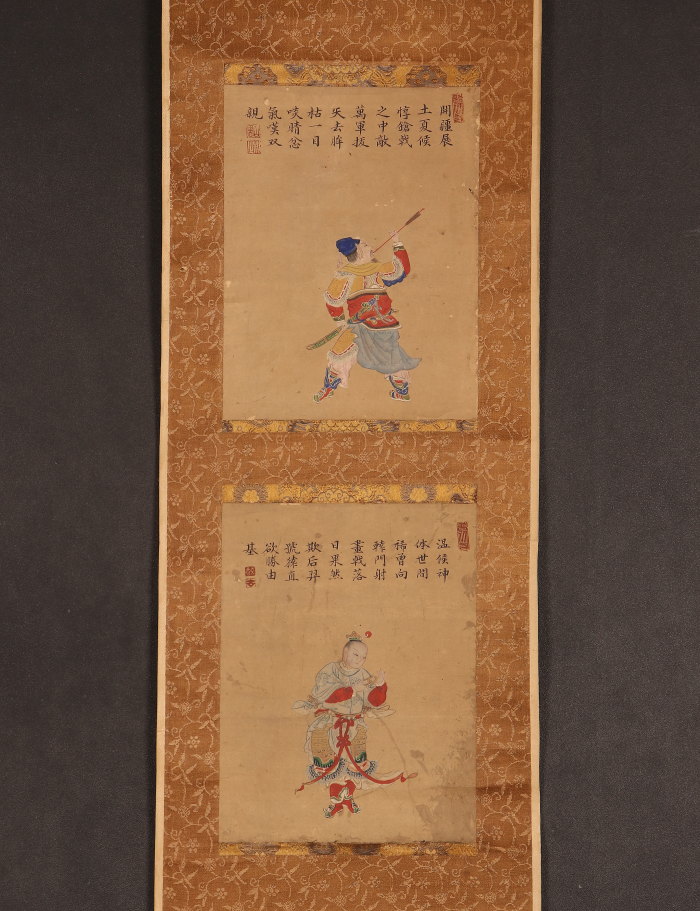 開疆展
土夏候
惇鎗戟
之中敵
萬軍拔
矢去眸
枯一目
啖睛忿
氣嘆双
親
温候神
休世間
稀曾向
轅門射
畫戟落
日果然
欺后羿
號猿直
欲勝由
基